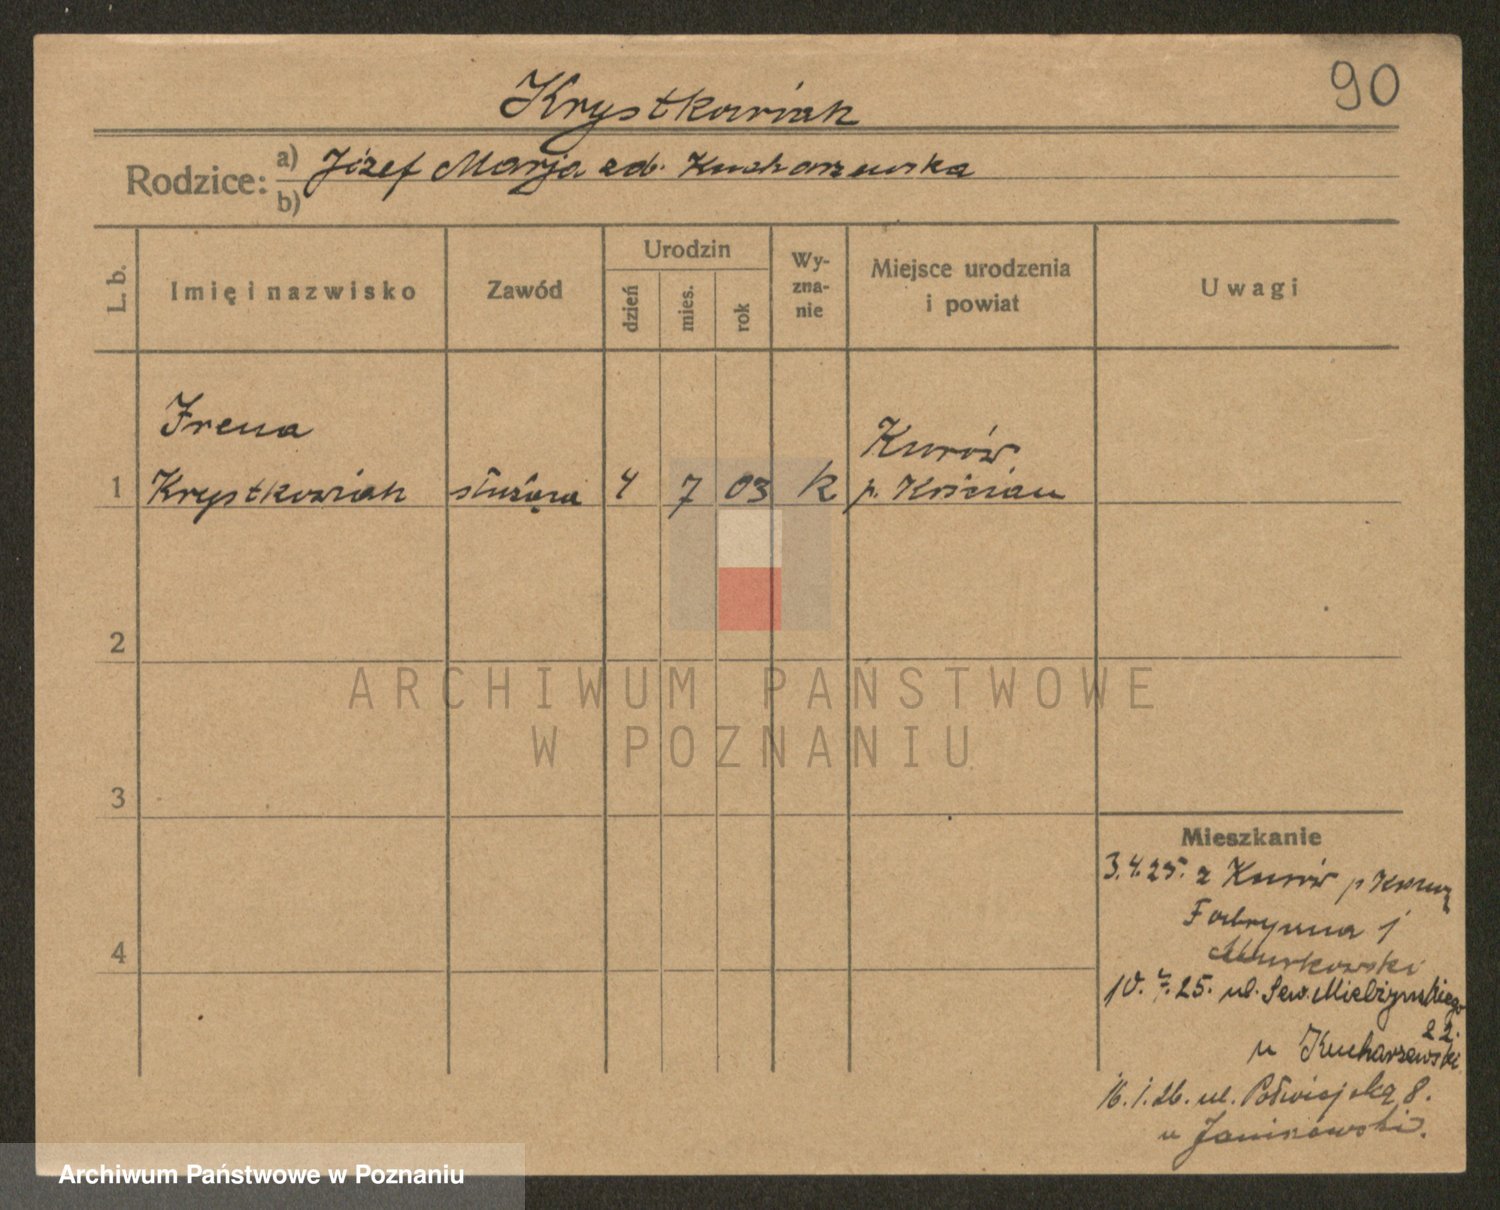 90
Krystkowiak
Rodzice: a) Józef Marja zd. Kucharzewska
b)
L. b.
Imię i nazwisko
Zawód
Urodzin
dzień
mies.
rok
Wy-
zna-
nie
Miejsce urodzenia
i powiat
Uwagi
Irena
Kurów
1 Krystkowiak służąca 4 7 03 k p. Kościan
2
ARCHIWUM PAŃSTWOWE
W POZNANIU
3
4
Mieszkanie
3.4.25. z Kurów p
Fabryczna 1
Murkowski
10. 7. 25. ul. Sew. Mielżyńskiego
22.
u Kucharzewski
16. 1. 26. ul. Półwiejska 8.
u Janikowski.
Archiwum Państwowe w Poznaniu